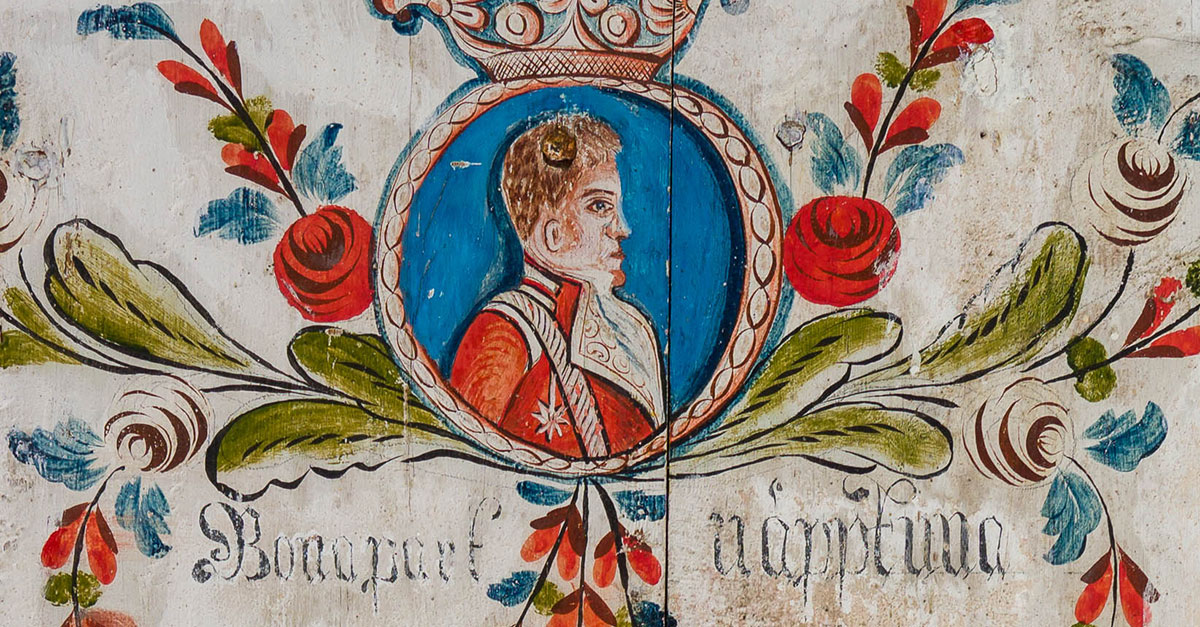 Bonapart näpptuna